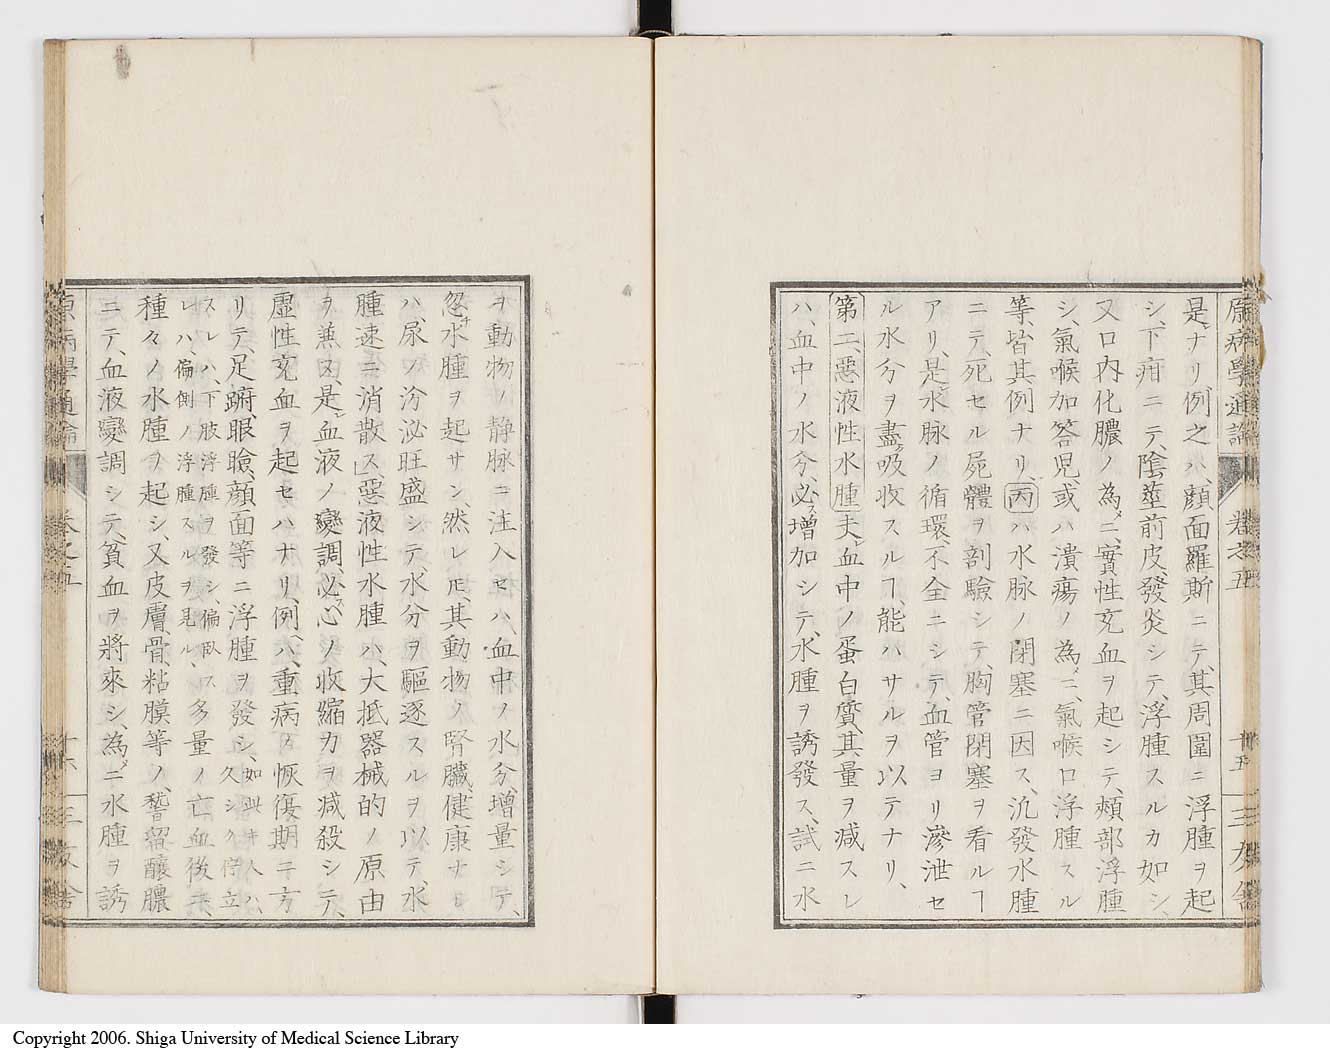 原病學通論 卷之五 廿五 三友舎
是ナリ、例之ハ、顔面羅斯ニテ、其周圍ニ浮腫ヲ起
シ、下疳ニテ、陰莖前皮、發炎シテ、浮腫スルカ如シ、
又口内化膿ノ為ニ、實性充血ヲ起シテ、頰部浮腫
シ、氣喉加答兒、或ハ潰瘍ノ為ニ、氣喉口浮腫スル
等、皆其例ナリ、丙ハ水脉ノ閉塞ニ因ス、汎發水腫
ニテ、死セル屍體ヲ剖驗シテ、胸管閉塞ヲ看ルヿ
アリ、是レ水脉ノ循環、不全ニシテ、血管ヨリ滲泄セ
ル水分ヲ盡ク吸收スルヿ、能ハサルヲ以テナリ、
第二、惡液性水腫 夫レ血中ノ蛋白質、其量ヲ减スレ
ハ、血中ノ水分、必ス増加シテ、水腫ヲ誘發ス、試ニ水
ヲ動物ノ静脉ニ注入セハ、血中ノ水分、増量シテ、
忽チ水腫ヲ起サン、然レ𪜈、其動物ノ腎臓、健康ナレ
ハ、尿ノ泌旺盛シテ、水分ヲ驅逐スルヲ以テ、水
腫速ニ消散ス」惡液性水腫ハ、大抵器械的ノ原由
ヲ兼又、是レ血液ノ變調、必ス心ノ收縮力ヲ减殺シテ、
虚性充血ヲ起セハナリ、例ハ、重病ノ恢復期ニ方
リテ、足蹠、眼瞼、顔面等ニ浮腫ヲ發シ、如此キ人ハ、久シク佇立
スレハ、下肢浮腫ヲ發シ、偏臥スレハ、偏側ノ浮腫スルヲ見ル、多量ノ亡血後ニ、
種々ノ水腫ヲ起シ、又皮膚、骨、粘膜等ノ、稽留釀膿
ニテ、血液變調シテ、貧血ヲ將來シ、為ニ水腫ヲ誘
原病學通論 卷之五 廿六 三友舎
Copyright 2006. Shiga University of Medical Science Library